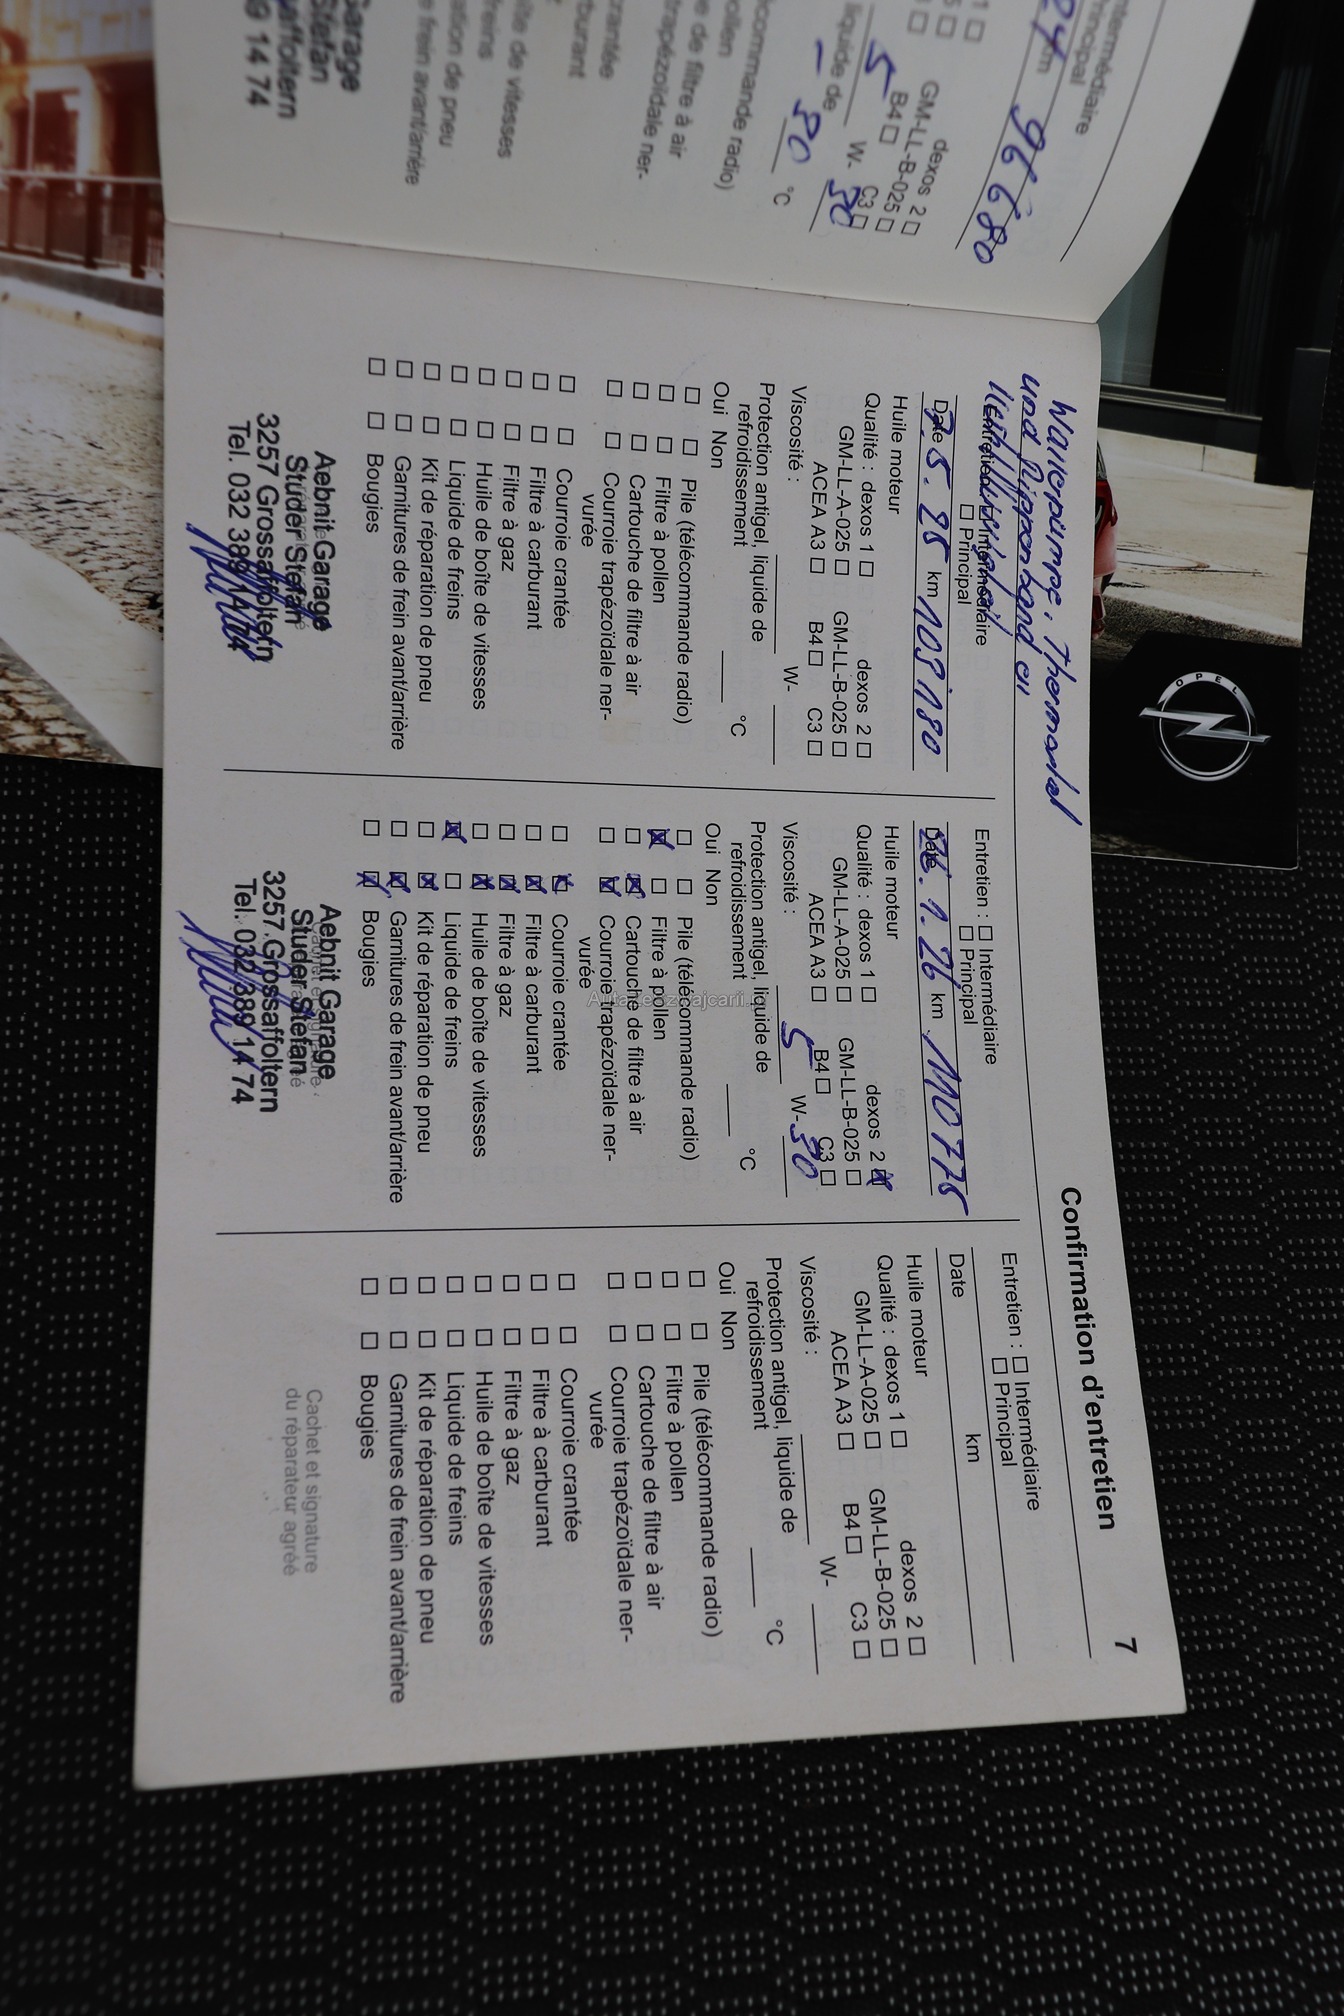 ntermédiaire
rincipal
24 km 96680
dexos 2 ☐
1 ☐ GM-LL-B-025 ☐
5 ☐ B4 ☐ C3 ☐
5 W- 30
liquide de
- 30 °C
lcommande radio)
ollen
e de filtre à air
trapézoïdale ner-
crantée
burant
îte de vitesses
freins
ation de pneu
e frein avant/arrière
Garage
Stefan
affoltern
9 14 74
7
Confirmation d'entretien
Wasserpumpe, Thermostat
und Rippenband en
Entretien : ☐ Intermédiaire
☐ Principal
Date 7.5.25 km 109180
Huile moteur
Qualité : dexos 1 ☐ dexos 2 ☐
GM-LL-A-025 ☐ GM-LL-B-025 ☐
ACEA A3 ☐ B4 ☐ C3 ☐
Viscosité : W-
Protection antigel, liquide de
refroidissement °C
Oui Non
☐ ☐ Pile (télécommande radio)
☐ ☐ Filtre à pollen
☐ ☐ Cartouche de filtre à air
☐ ☐ Courroie trapézoïdale ner-
vurée
☐ ☐ Courroie crantée
☐ ☐ Filtre à carburant
☐ ☐ Filtre à gaz
☐ ☐ Huile de boîte de vitesses
☐ ☐ Liquide de freins
☐ ☐ Kit de réparation de pneu
☐ ☐ Garnitures de frein avant/arrière
☐ ☐ Bougies
Aebnit Garage
Studer Stefan
3257 Grossaffoltern
Tel. 032 389 14 74
Entretien : ☐ Intermédiaire
☐ Principal
Date 26.1.26 km 110775
Huile moteur
Qualité : dexos 1 ☐ dexos 2 ☒
GM-LL-A-025 ☐ GM-LL-B-025 ☐
ACEA A3 ☐ B4 ☐ C3 ☐
Viscosité : 5 W- 30
Protection antigel, liquide de
refroidissement °C
Oui Non
☐ ☐ Pile (télécommande radio)
☒ ☐ Filtre à pollen
☐ ☒ Cartouche de filtre à air
☐ ☒ Courroie trapézoïdale ner-
vurée
☐ ☒ Courroie crantée
☐ ☒ Filtre à carburant
☐ ☒ Filtre à gaz
☐ ☒ Huile de boîte de vitesses
☒ ☐ Liquide de freins
☐ ☒ Kit de réparation de pneu
☐ ☒ Garnitures de frein avant/arrière
☐ ☒ Bougies
Aebnit Garage
Studer Stefan
3257 Grossaffoltern
Tel. 032 389 14 74
Entretien : ☐ Intermédiaire
☐ Principal
Date km
Huile moteur
Qualité : dexos 1 ☐ dexos 2 ☐
GM-LL-A-025 ☐ GM-LL-B-025 ☐
ACEA A3 ☐ B4 ☐ C3 ☐
Viscosité : W-
Protection antigel, liquide de
refroidissement °C
Oui Non
☐ ☐ Pile (télécommande radio)
☐ ☐ Filtre à pollen
☐ ☐ Cartouche de filtre à air
☐ ☐ Courroie trapézoïdale ner-
vurée
☐ ☐ Courroie crantée
☐ ☐ Filtre à carburant
☐ ☐ Filtre à gaz
☐ ☐ Huile de boîte de vitesses
☐ ☐ Liquide de freins
☐ ☐ Kit de réparation de pneu
☐ ☐ Garnitures de frein avant/arrière
☐ ☐ Bougies
Cachet et signature
du réparateur agréé
OPEL